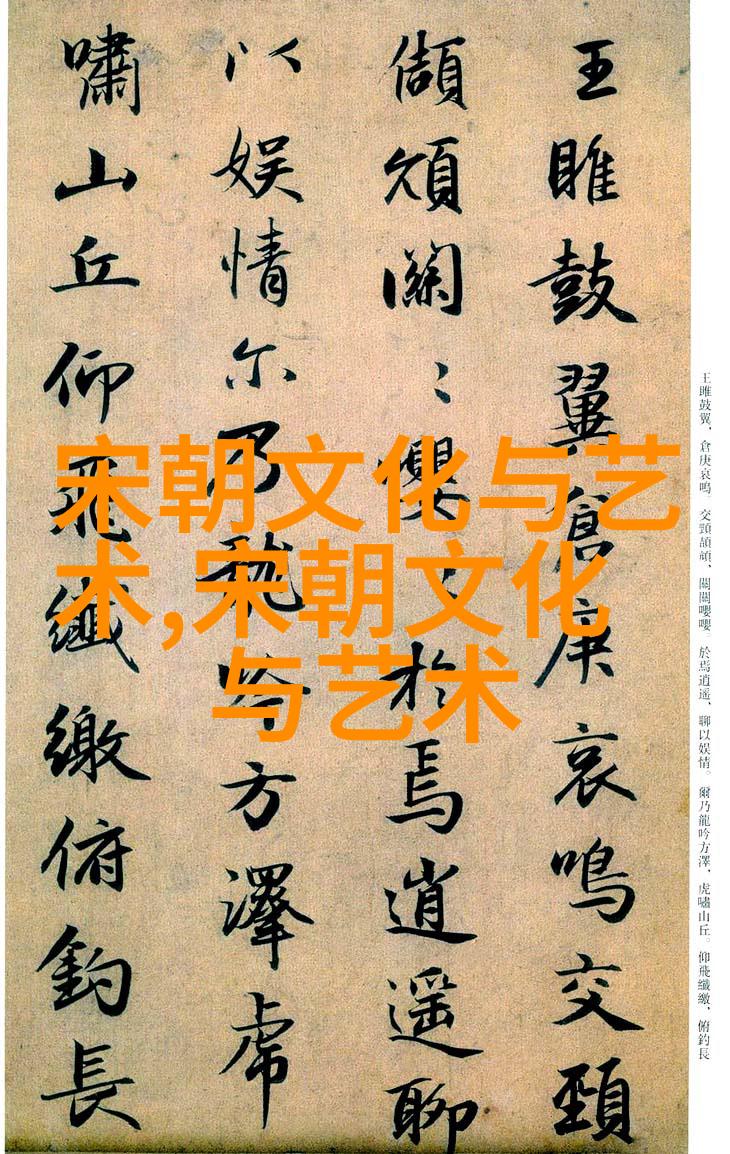 王雎鼓翼倉庚哀鳴交頸
頡頏關〻嚶〻於焉逍遥聊
以娱情尔乃龍吟方澤虎
嘯山丘仰飛纖繳俯釣長
宋朝文化与艺
术,宋朝文化
与艺术
王雎鼓翼、倉庚哀鳴。交頸頡頏、關關嚶嚶。於焉逍遥、聊以娱情。爾乃龍吟方澤、虎嘯山丘。仰飛纖繳、俯釣長